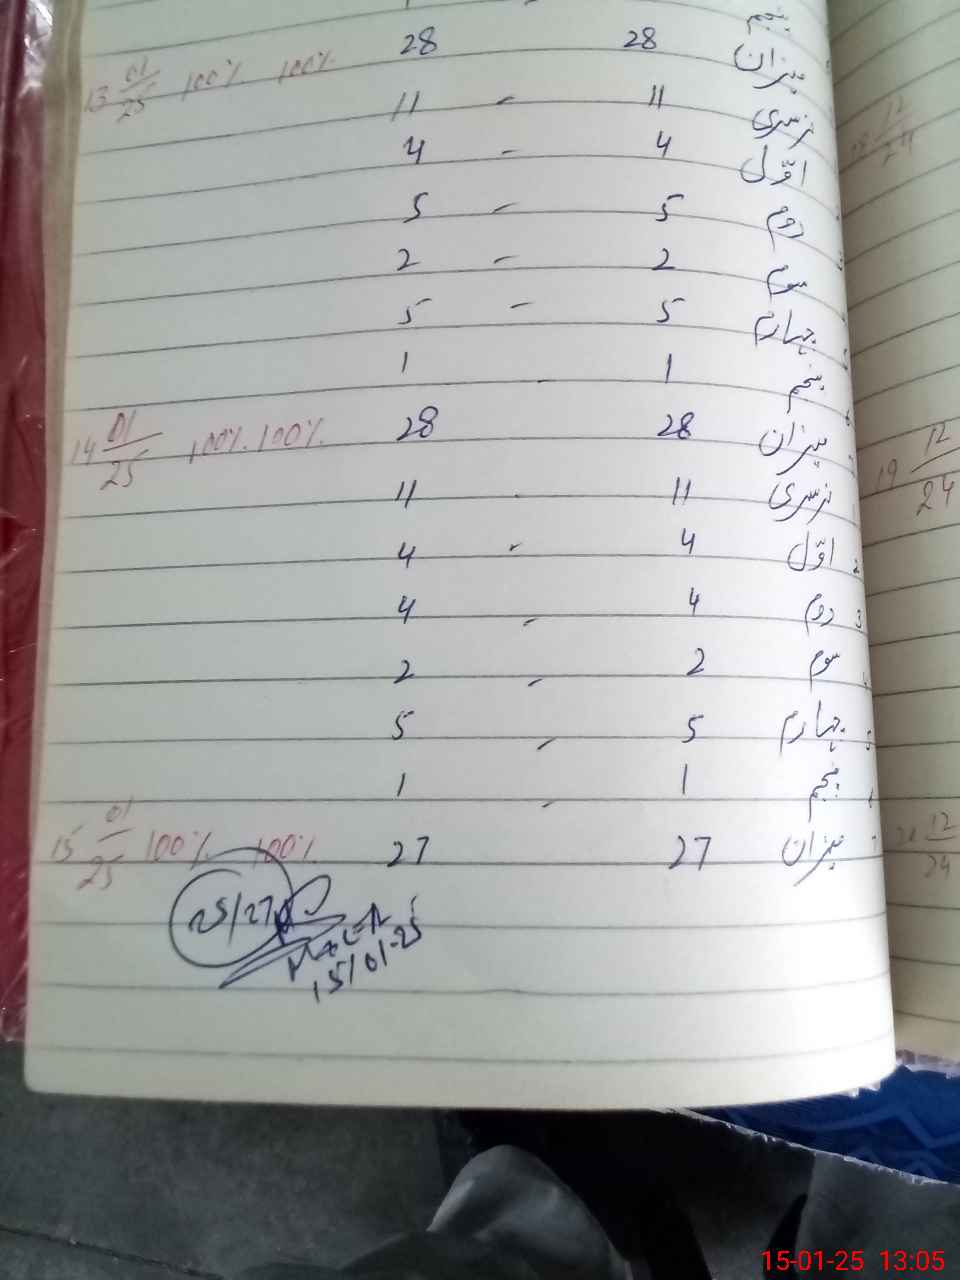 پنجم
میزان 28 28 100% 100% 13 01/25
نرسری 11 - 11
اوّل 4 - 4
دوم 5 - 5
سوم 2 - 2
چہارم 5 - 5
پنجم 1 - 1
میزان 28 28 100% 100% 14 01/25
نرسری 11 - 11
2 اوّل 4 - 4
3 دوم 4 - 4
سوم 2 - 2
5 چہارم 5 - 5
پنجم 1 - 1
میزان 27 27 100% 100% 15 01/25
25/27
15/01-25
12/24
19 12/24
12/24
15-01-25 13:05